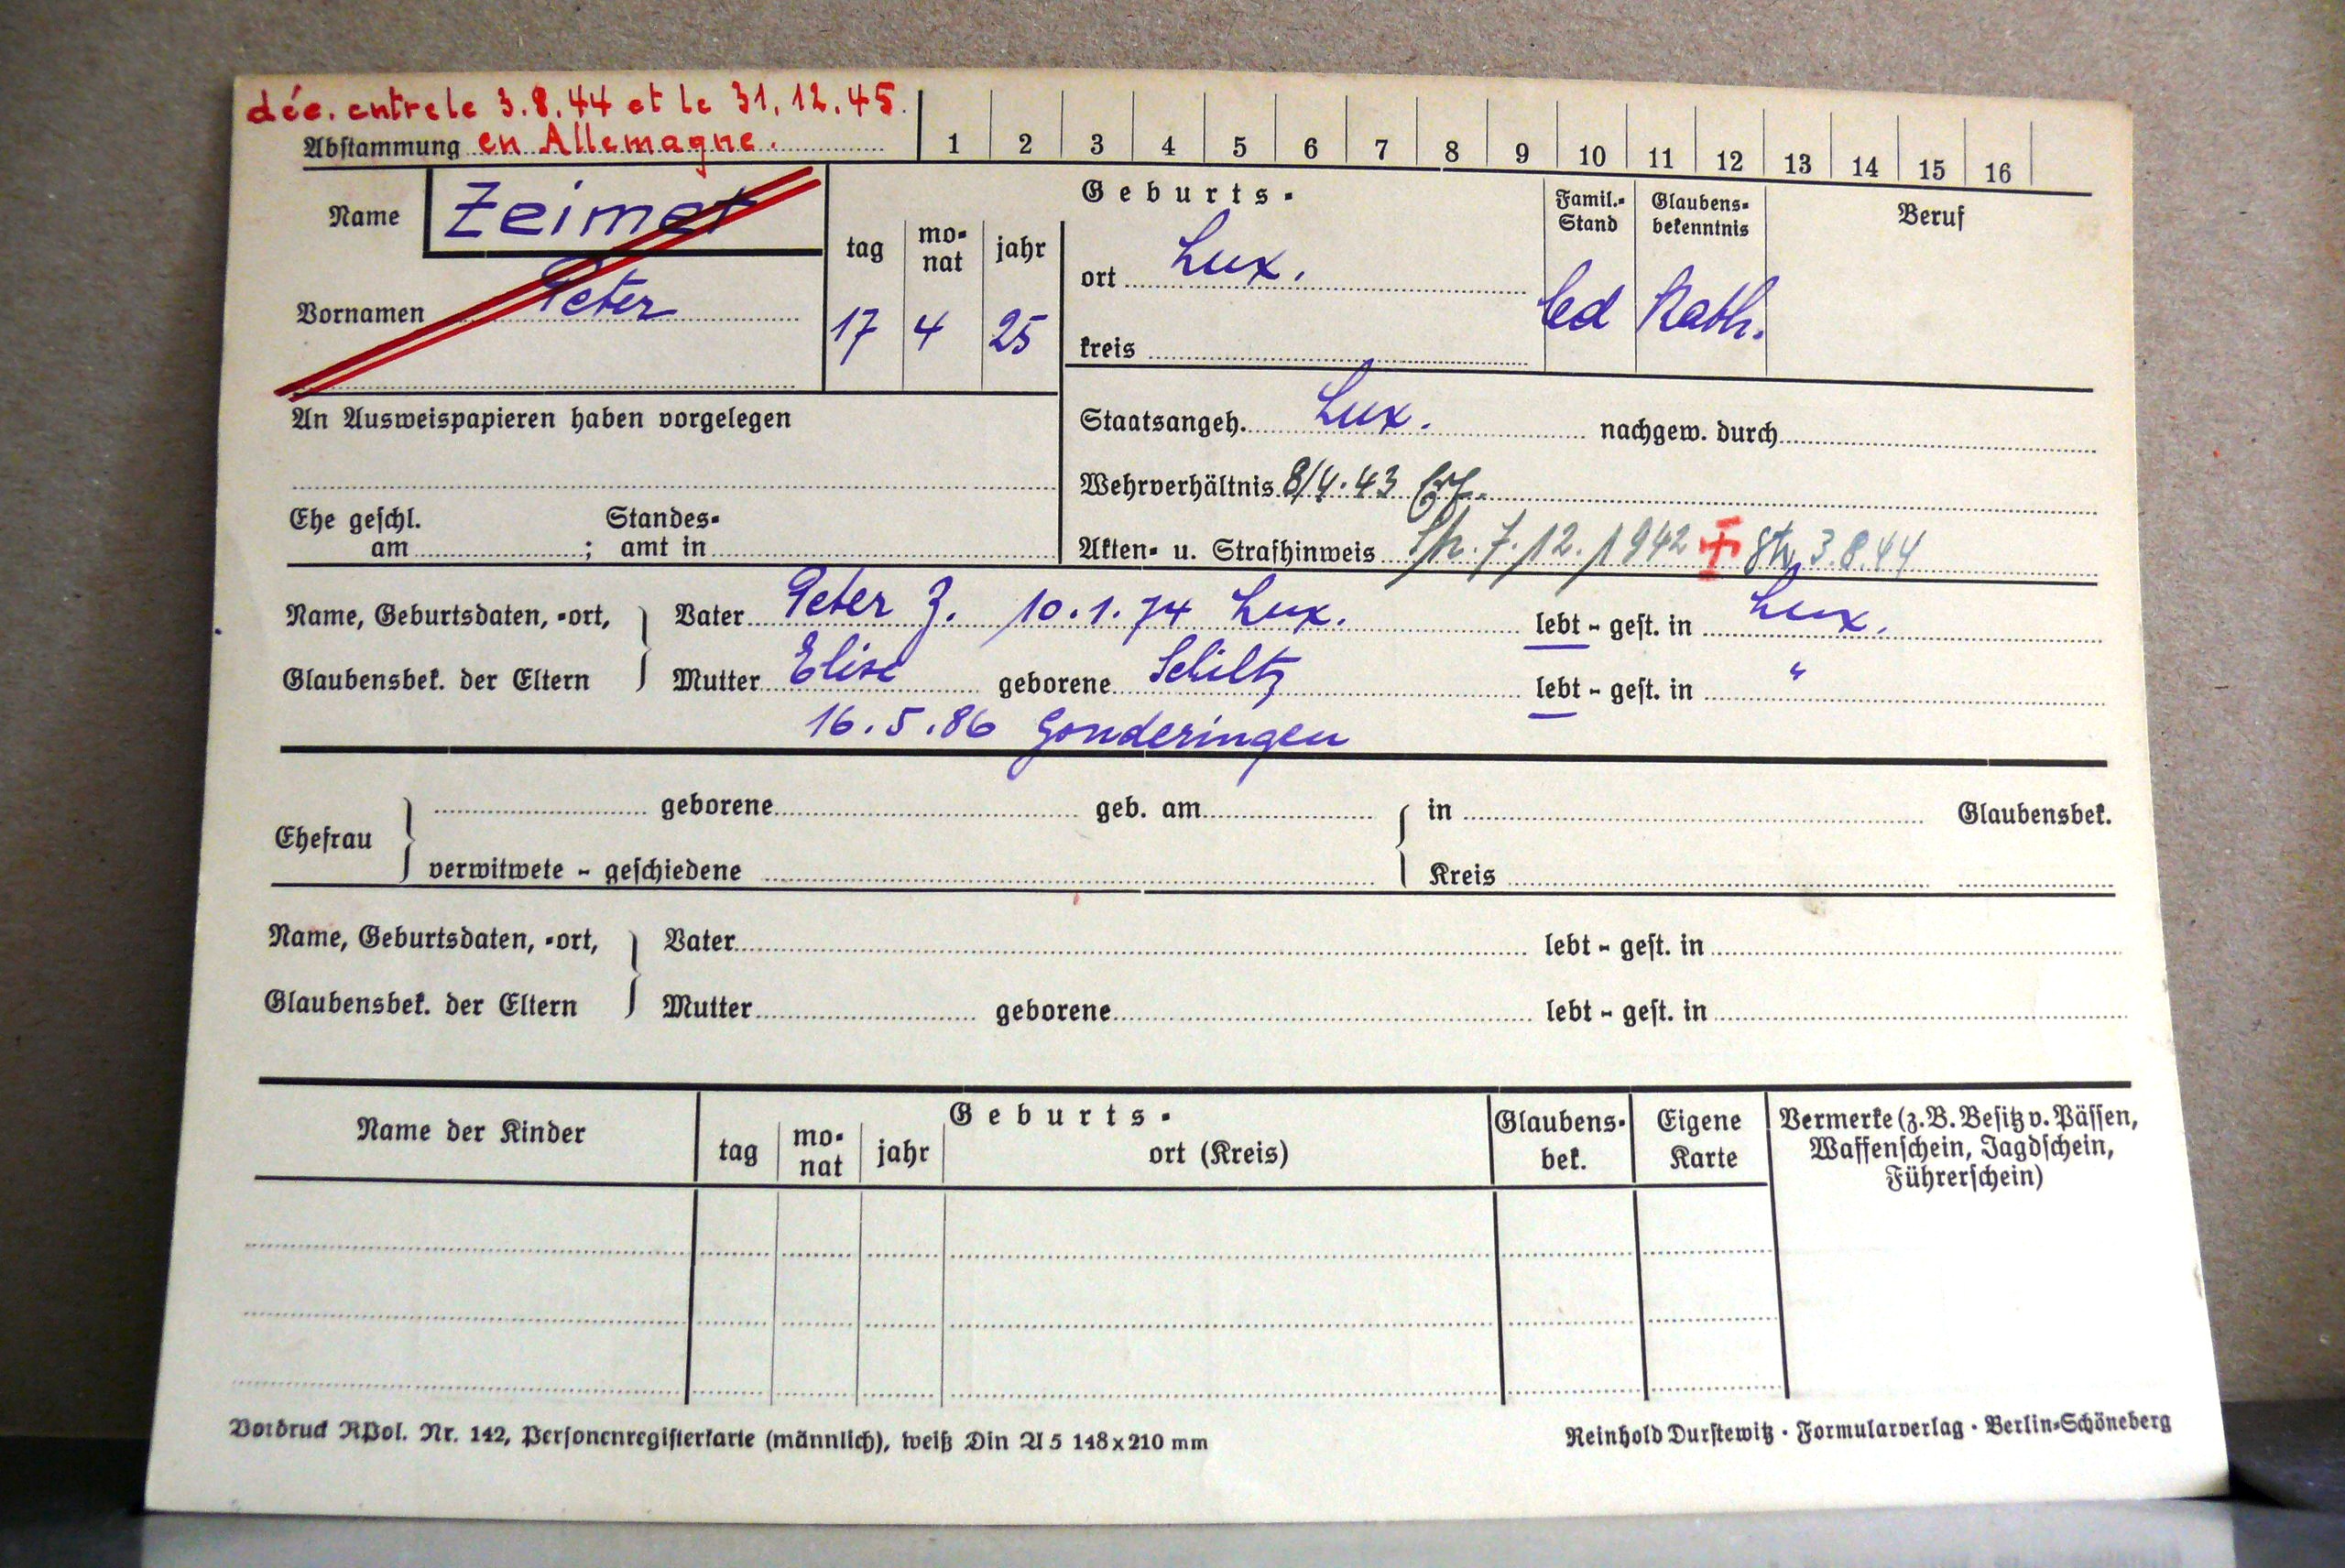 déc. entre le 3.8.44 et le 31.12.45.
Abstammung en Allemagne. 1 2 3 4 5 6 7 8 9 10 11 12 13 14 15 16
Name Zeimet
Vornamen Peter
Geburts-
tag mo-nat jahr
17 4 25
ort Lux.
kreis
Famil.-Stand led
Glaubens-bekenntnis Kath.
Beruf
An Ausweispapieren haben vorgelegen
Staatsangeh. Lux. nachgew. durch
Wehrverhältnis 8/4.43 Erf.
Ehe geschl. Standes-
am ; amt in
Akten- u. Strafhinweis 7.12.1942 3.8.44
Name, Geburtsdaten, -ort, Vater Peter Z. 10.1.74 Lux. lebt - gest. in Lux.
Glaubensbek. der Eltern Mutter Elise geborene Schiltz lebt - gest. in "
16.5.86 Gonderingen
Ehefrau
geborene geb. am in Glaubensbek.
verwitwete - geschiedene Kreis
Name, Geburtsdaten, -ort, Vater lebt - gest. in
Glaubensbek. der Eltern Mutter geborene lebt - gest. in
Name der Kinder
Geburts-
tag mo-nat jahr ort (Kreis)
Glaubens-bek.
Eigene Karte
Vermerke (z.B. Besitz v. Pässen,
Waffenschein, Jagdschein,
Führerschein)
Vordruck RPol. Nr. 142, Personenregisterkarte (männlich), weiß Din A 5 148x210 mm
Reinhold Durstewitz · Formularverlag · Berlin-Schöneberg